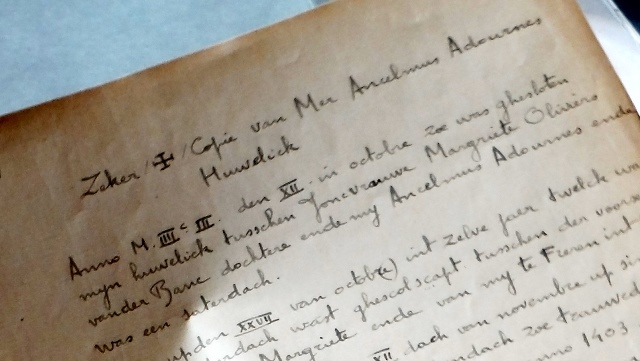 Zeker / ✠ / Copie van Mer Ancelmus Adournes
Huwelick
Anno M. IIIIc III. den XII. in octobre zoe was ghesloten
myn huwelick tusschen Joncvrauwe Margriete Oliviers
vander Banc dochtere ende my Ancelmus Adournes ende
was een saterdach.
upden XXVII van octobre) int zelve jaer twelck wa
wast ghescolscapt tusschen der voors
Margriete ende van my te Fieren int
XII dach van novembre up si
zoe trauwed
anno 1403